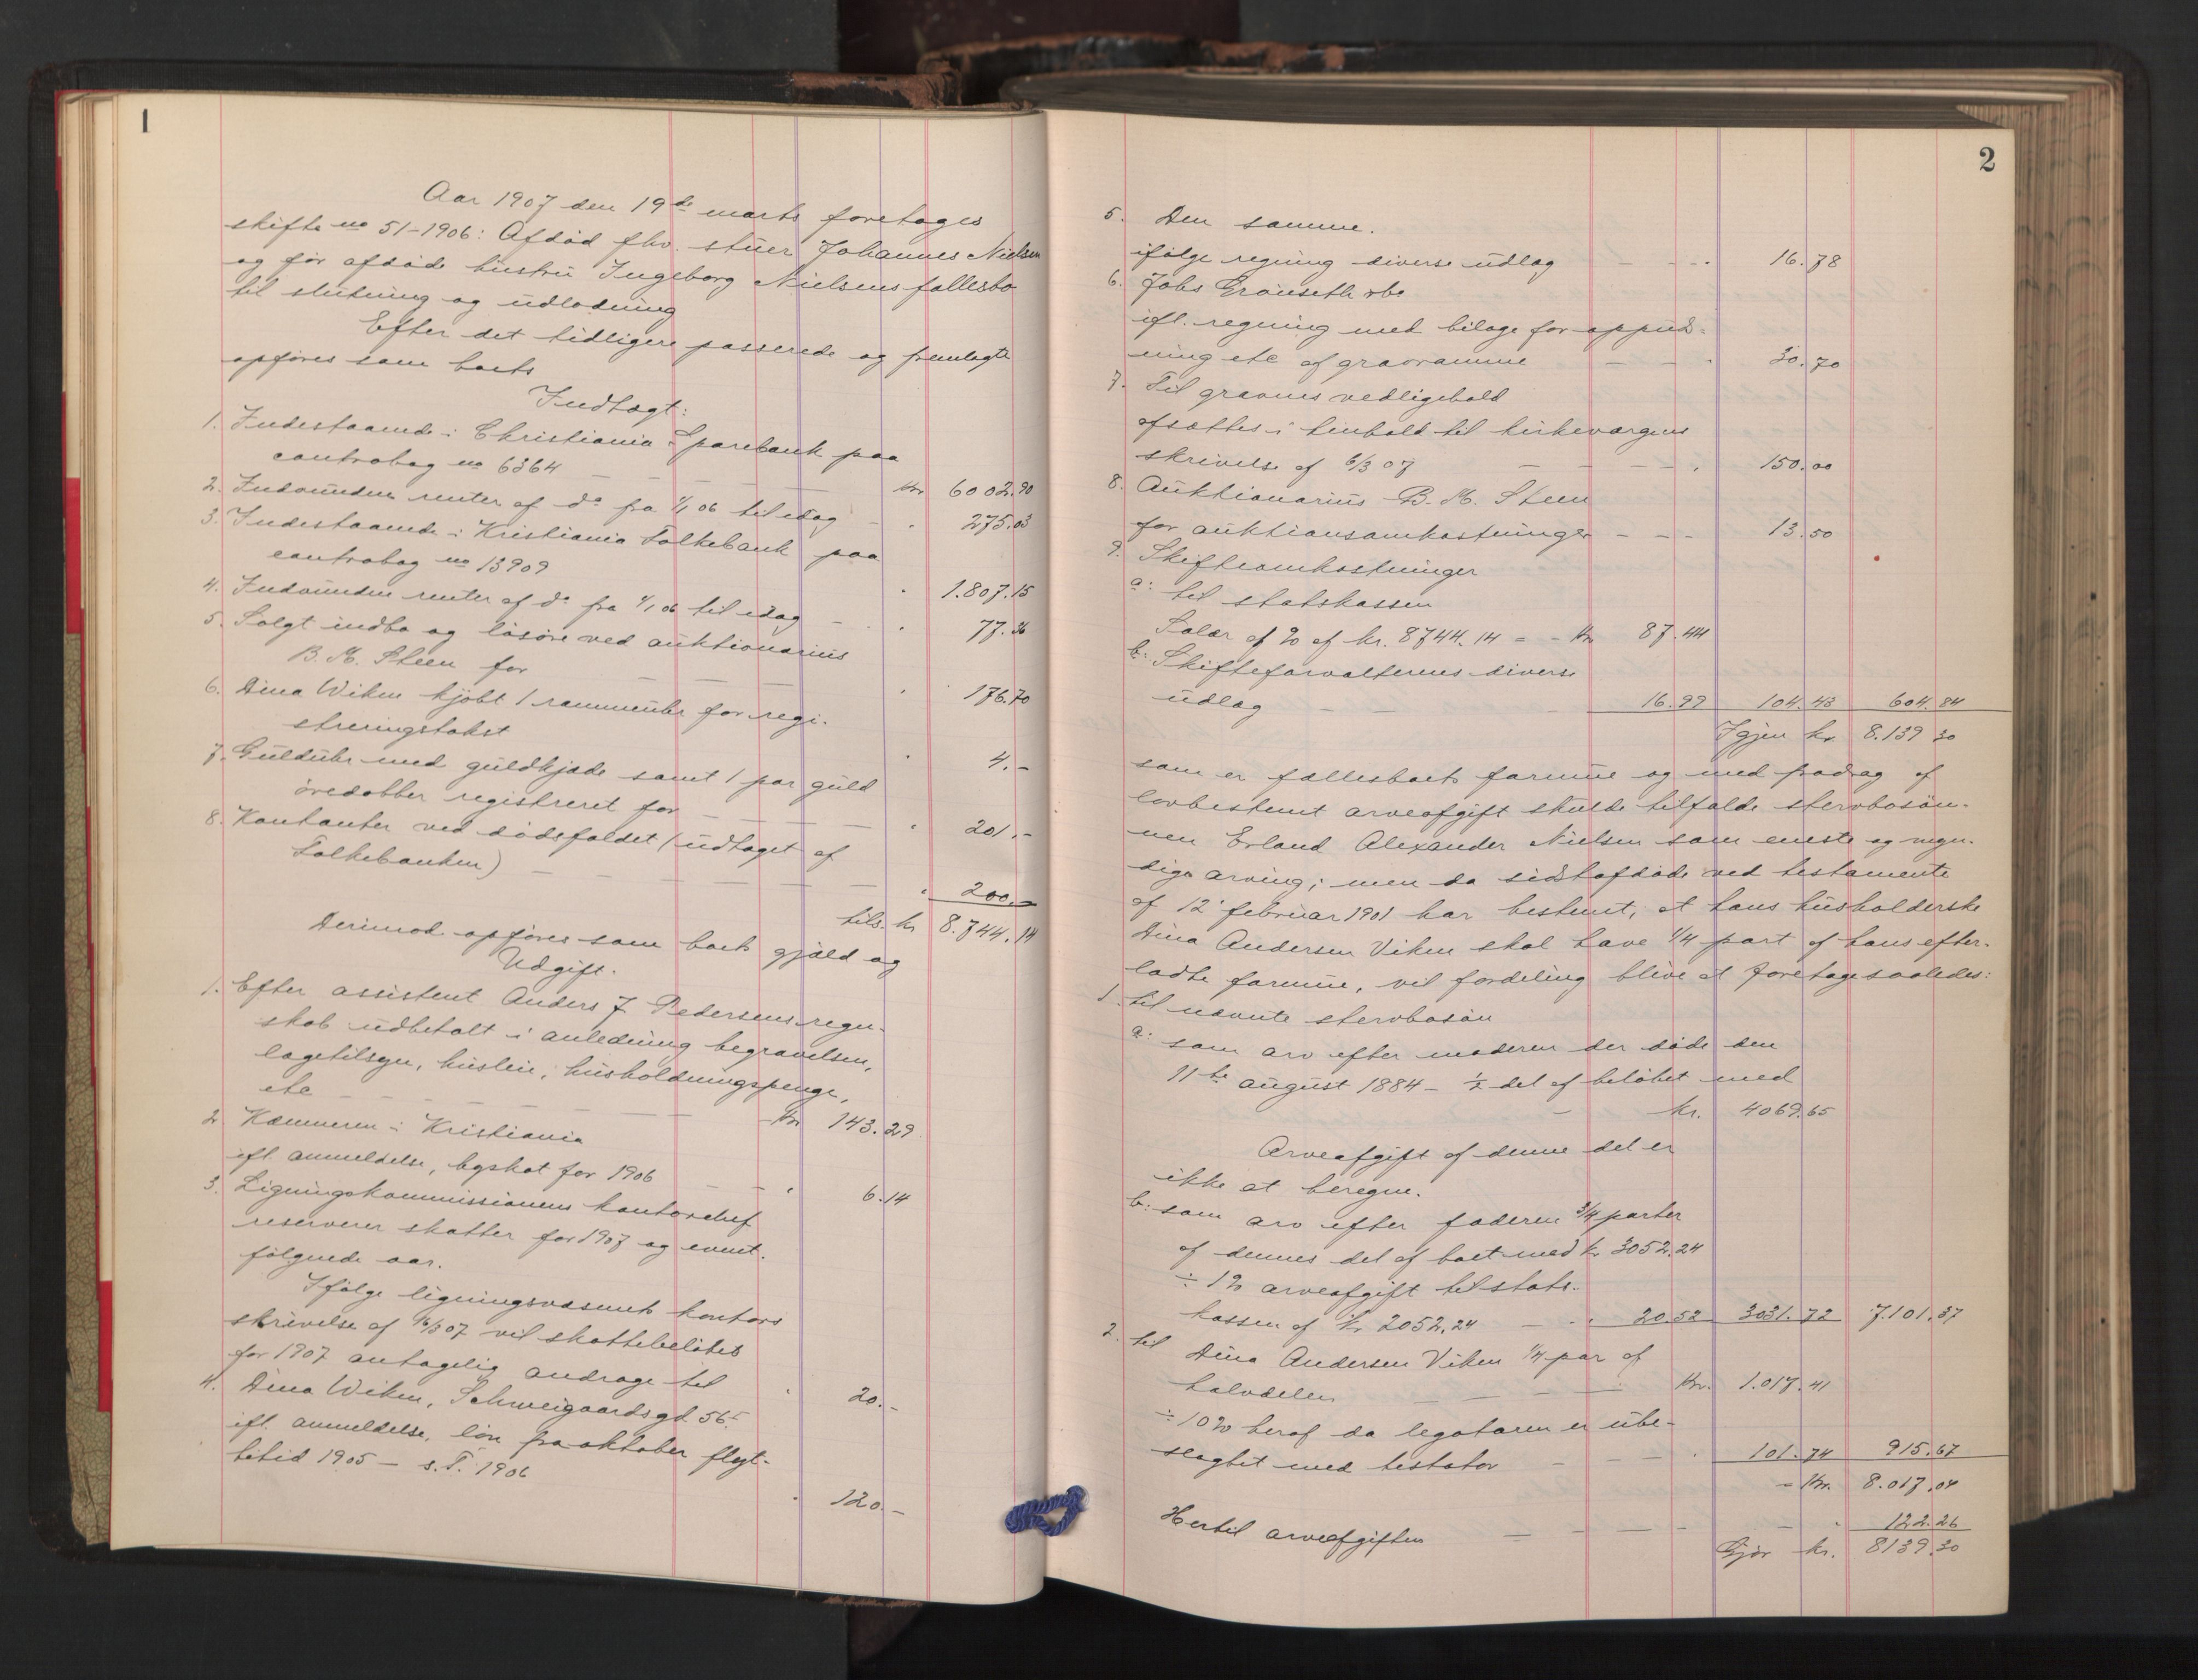 1
Aar 1907 den 19de marts foretoges
skifte no 51-1906: Afdød fhv. stuer Johannes Nielsen
og før afdøde hustru Ingeborg Nielsens fællesbo
til slutning og udlodning
Efter det tidligere passerede og fremlagte
opføres som boets
Indtægt:
1. Indestaaende i Christiania Sparebank paa
contrabog no 6364 — — — — kr 6002.90
2. Indvundne renter af do fra 1/1 06 til idag - " 275.03
3. Indestaaende i Kristiania Folkebank paa
contrabog no 13909 " 1.807.15
4. Indvundne renter af do fra 1/1 06 til idag - " 77.36
5. Solgt indbo og løsøre ved auktionarius
B. M. Steen for — — — " 176.70
6. Dina Wiken kjøbt 1 rammeuhr for regi-
streringstakst " 4.-
7. Gulduhr med guldkjæde samt 1 par guld
øredobber registreret for — — — " 201.-
8. Kontanter ved dødsfaldet (udtaget af
Folkebanken) — — — — — " 200.-
tils. kr 8.744.14
Derimod opføres som boets gjæld og
Udgift.
1. Efter assistent Anders J. Pedersens regn-
skab udbetalt i anledning begravelsen,
lagetilsyn, husleie, husholdningspenge,
etc — — — — — kr 143.29
2 Kæmneren i Kristiania
ifl. anmeldelse, byskat for 1906 — — " 6.14
3. Ligningskommissionens kontorchef
reserverer skatter for 1907 og event.
følgende aar.
Ifølge ligningsvæsenets kontors
skrivelse af 16/3 07 vil skattebeløbet
for 1907 antagelig andrage til " 20.-
4. Dina Wiken, Schweigaardsgd 56
ifl. anmeldelse, løn fra oktober flyt-
tetid 1905 — s. T. 1906 " 120.-
2
5. Den samme.
ifølge regning diverse udlæg — - - 16.78
6. Johs Grønseth &co
ifl. regning med bilage for oppuds-
ning etc af gravramme — — - 30.70
7. Til gravens vedligehold
afsættes i henhold til kirkevargens
skrivelse af 6/3 07 — — — - . 150.00
8. Auktionarius B. M. Steen
for auktionsomkostninger - - - 13.50
9. Skifteomkostninger
a: til statskassen
Salær af % af kr. 8744.14 = - kr 87.44
b: Skifteforvalterens diverse
udlæg — — — 16.99 104.43 604.84
Igjen kr 8.139 30
som er fællesboets formue og med fradrag af
lovbestemt arveafgift skulde tilfalde stervbosøn-
nen Erland Alexander Nielsen som eneste og myn-
dige arving; men da sidstafdøde ved testamente
af 12' februar 1901 har bestemt, at hans husholderske
Dina Andersen Viken skal have 1/4 part af hans efter-
ladte formue, vil fordeling blive at foretage saaledes:
1. til nævnte stervbosøn
a: som arv efter moderen der døde den
11te august 1884 - 1/2 del af beløbet med
— kr. 4069.65
Arveafgift af denne del er
ikke at beregne.
b: som arv efter faderen 3/4 parter
af dennes del af boet med kr 3052.24
÷ 1% arveafgift til stats-
kassen af kr 2052.24 — - . 20.52 3031.72 7.101.37
2. til Dina Andersen Viken 1/4 par af
halvdelen — — — kr. 1.017.41
÷ 10% heraf da legataren er ube-
slægtet med testator — — — . 101.74 915.67
= kr. 8.017.04
Hertil arveafgiften — — — — — " 122.26
Gjør kr. 8139.30